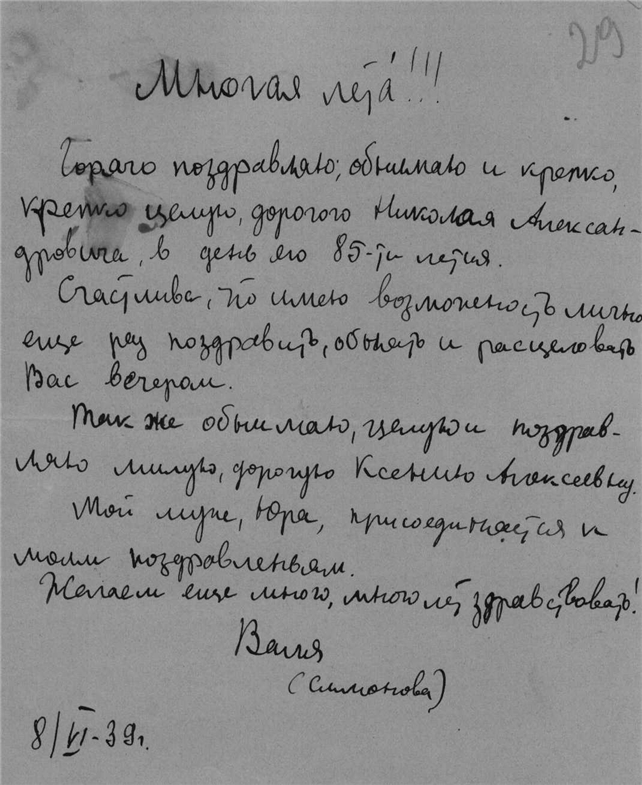 29
Многая лета!!!
Горячо поздравляю, обнимаю и крепко,
крепко целую, дорогого Николая Алексан-
дровича, в день его 85-ти летия.
Счастлива, что имею возможность лично
еще раз поздравить, обнять и расцеловать
Вас вечером.
Так же обнимаю, целую и поздрав-
ляю милую, дорогую Ксению Алексеевну.
Мой муж, Юра, присоединяется к
моим поздравленьям.
Желаем еще много, много лет здравствовать!
Валя
(Симонова)
8/VI-39г.